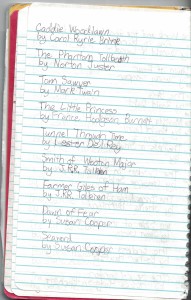 Caddie Woodlawn
by Carol Ryrie Brink
The Phantom Tollbooth
by Norton Juster
Tom Sawyer
by Mark Twain
The Little Princess
by France Hodgson Burnett
Tunnel Through Time
by Lester Del Rey
Smith of Wooton Major
by J.R.R. Tolkien
Farmer Giles of Ham
by J.R.R. Tolkien
Dawn of Fear
by Susan Cooper
Seaward
by Susan Cooper